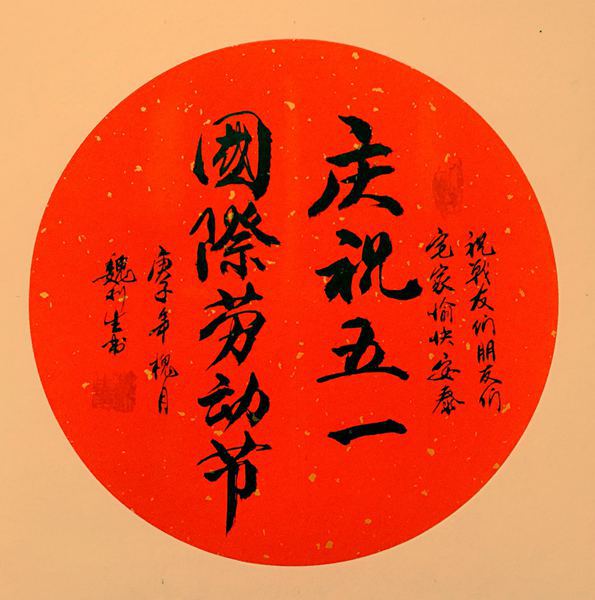 祝战友们朋友们
宅家愉快安泰
庆祝五一
國際劳动节
庚子年槐月
魏利生书